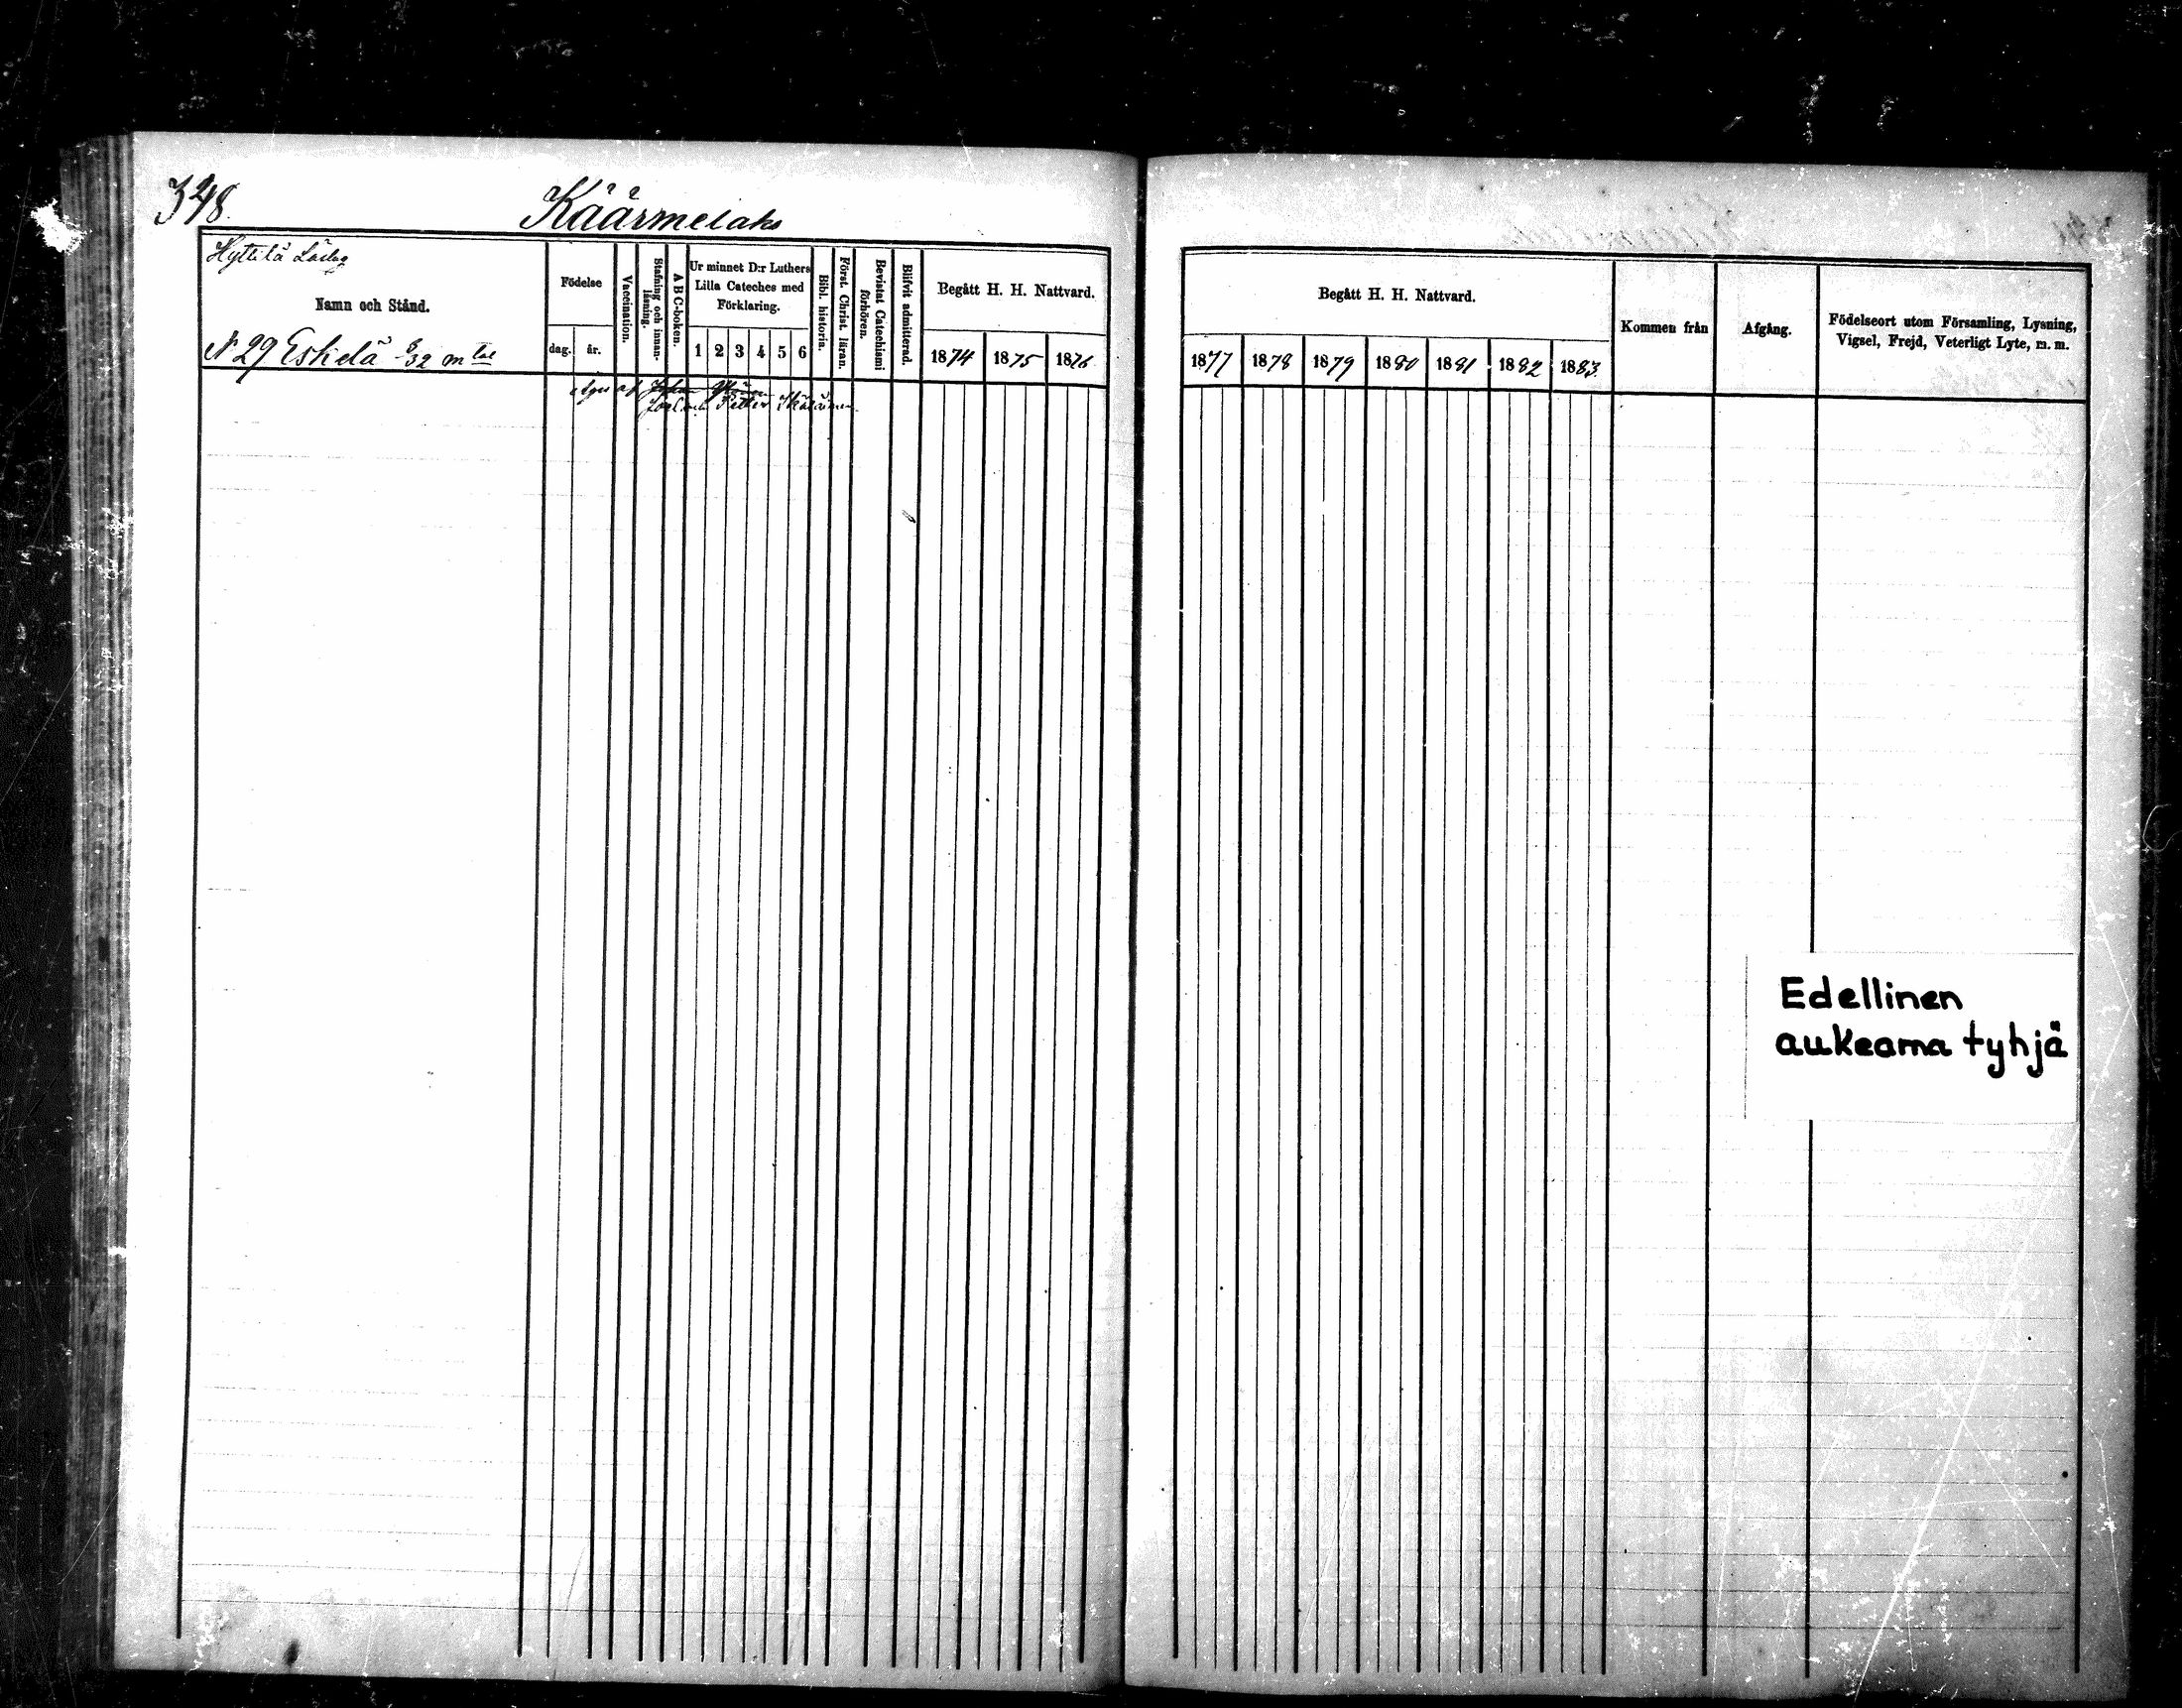 348.
Käärmelaks
Hyttilä Läslag
Namn och Stånd.
N 29 Eskelä 8/32 mtal
Födelse
dag. år.
Vaccination.
Stafning och innanläsning.
A B C-boken.
Ur minnet D:r Luthers
Lilla Cateches med
Förklaring.
1 2 3 4 5 6
Bibl. historia.
Först. Christ. läran.
Bevistat Catechismi förhören.
Blifvit admitterad.
Begått H. H. Nattvard.
1874 1875 1876
Äges af Johan
Joel och Petter
Begått H. H. Nattvard.
1877 1878 1879 1880 1881 1882 1883
Kommen från
Afgång.
Födelseort utom Församling, Lysning,
Vigsel, Frejd, Veterligt Lyte, m. m.
Edellinen
aukeama tyhjä